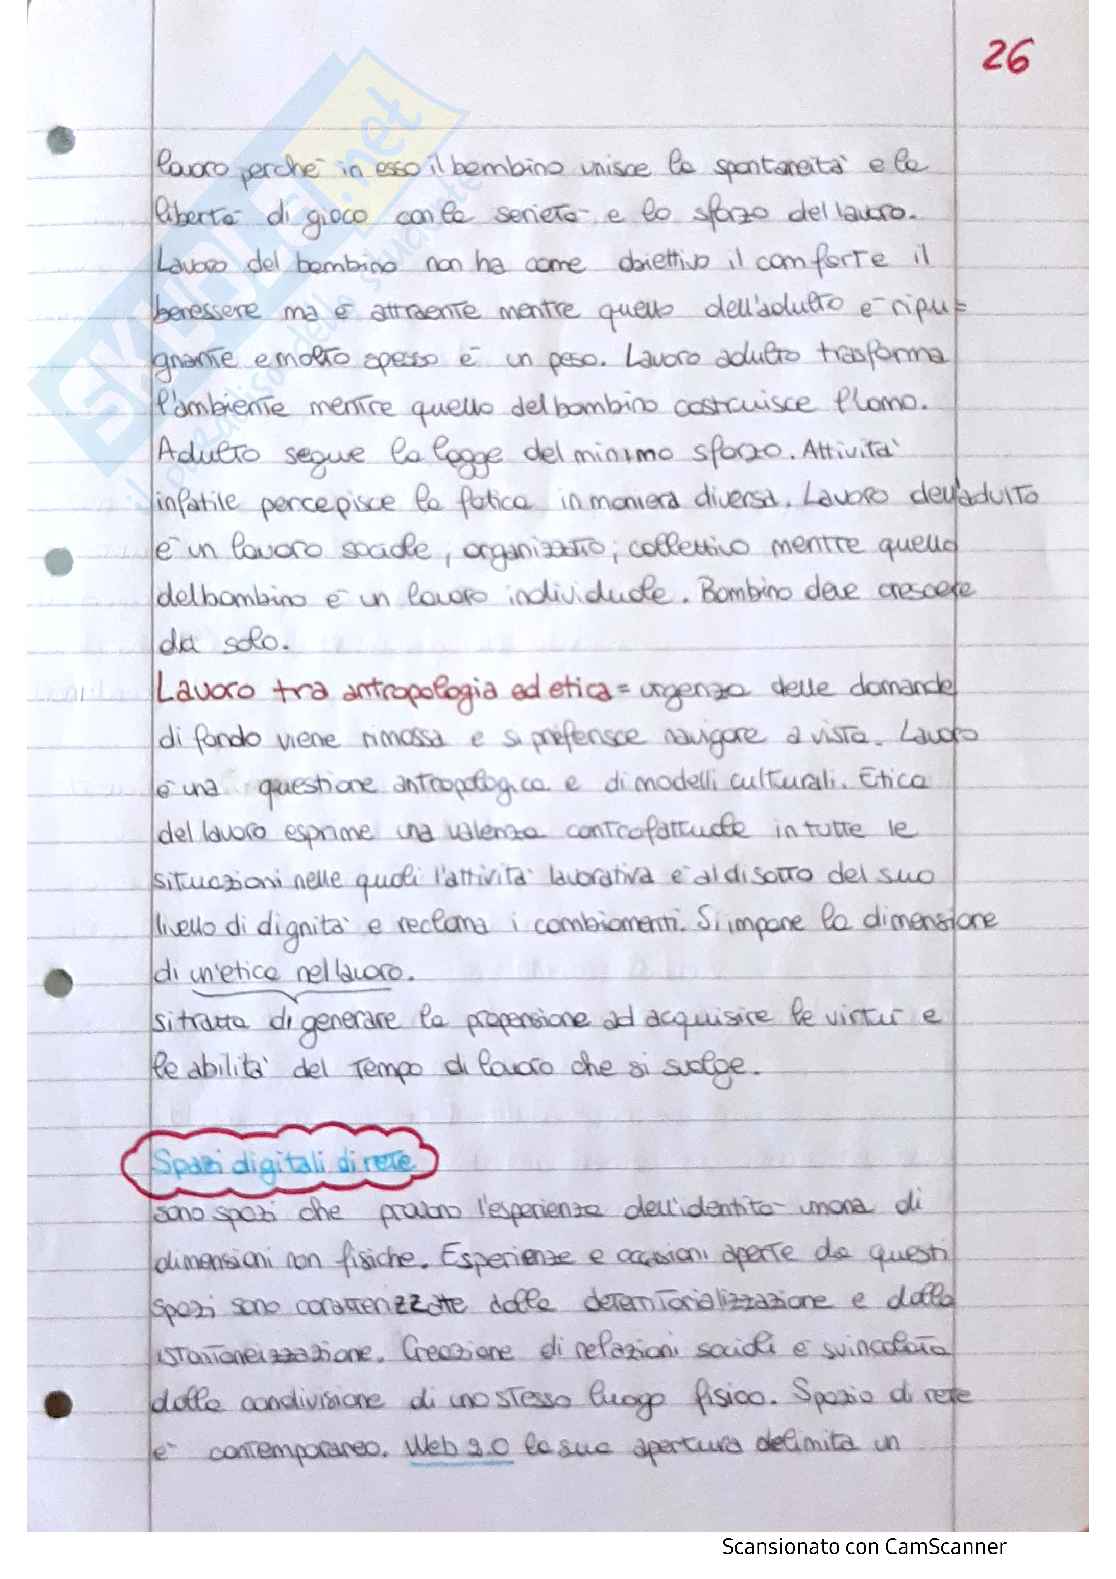 26
lavoro perché in esso il bambino unisce la spontaneità e la
libertà di gioco con la serietà e lo sforzo del lavoro.
Lavoro del bambino non ha come obiettivo il comforte il
benessere ma è attraente mentre quello dell'adulto è ripu=
gnante e molto spesso è un peso. Lavoro adulto trasforma
l'ambiente mentre quello del bambino costruisce l'uomo.
Adulto segue la legge del minimo sforzo. Attività
infatile percepisce la fatica in maniera diversa. Lavoro dell'adulto
è un lavoro sociale, organizzato, collettivo mentre quello
del bambino è un lavoro individuale. Bambino deve crescere
da solo.
Lavoro tra antropologia ed etica = urgenza delle domande
di fondo viene rimossa e si preferisce navigare a vista. Lavoro
è una questione antropologica e di modelli culturali. Etica
del lavoro esprime una valenza controfattuale in tutte le
situazioni nelle quali l'attività lavorativa è al disotto del suo
livello di dignità e reclama i cambiamenti. Si impone la dimensione
di un'etica nel lavoro.
si tratta di generare la propensione ad acquisire le virtù e
le abilità del tempo di lavoro che si svolge.
Spazi digitali di rete
sono spazi che provano l'esperienza dell'identità umana di
dimensioni non fisiche. Esperienze e occasioni aperte da questi
spazi sono caratterizzate dalla deterritorializzazione e dalla
istantaneizzazione. Creazione di relazioni sociali è svincolata
dalla condivisione di uno stesso luogo fisico. Spazio di rete
è contemporaneo. Web 2.0 la sua apertura delimita un
SKUOLA.net
il paradiso dello studente
Scansionato con CamScanner